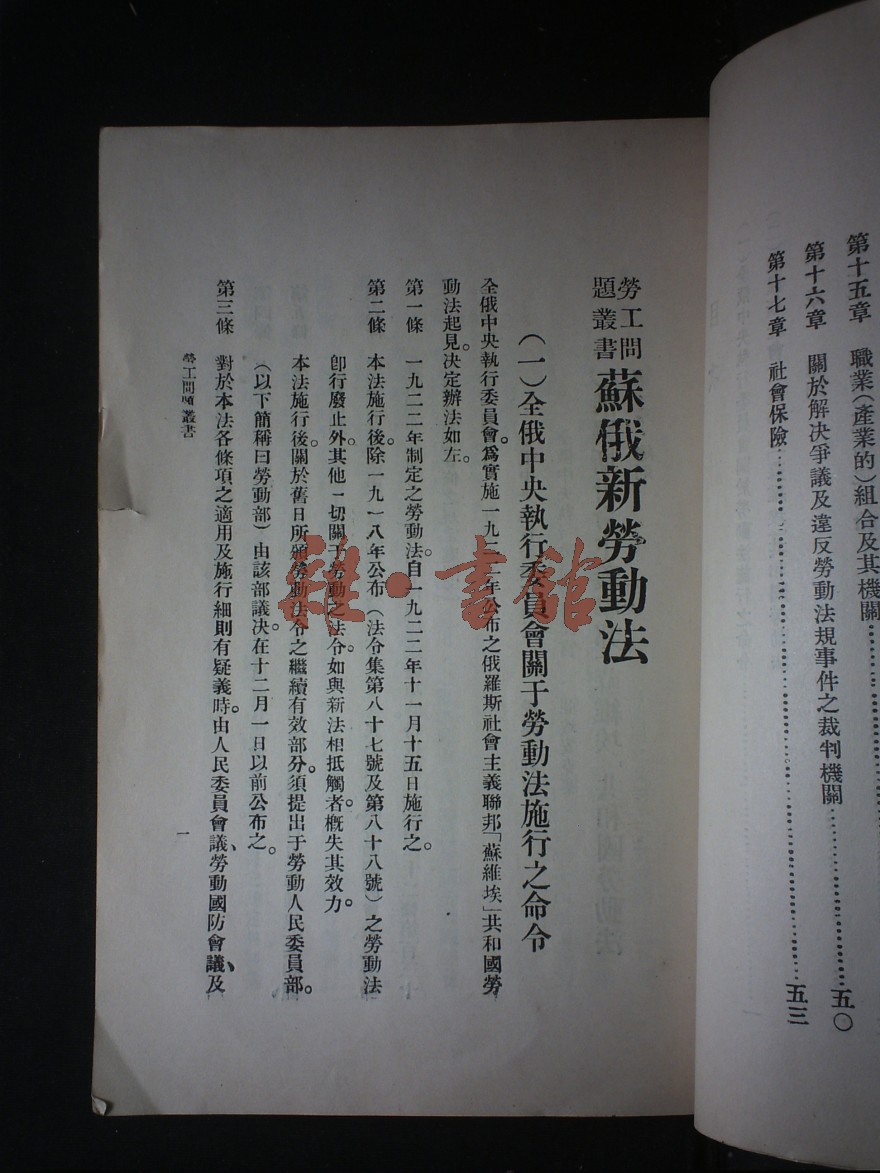 第十五章　職業(產業的)組合及其機關
第十六章　關於解決爭議及違反勞動法規事件之裁判機關…五〇
第十七章　社會保險…五三
勞工問題叢書　蘇俄新勞動法
(一)全俄中央執行委員會關于勞動法施行之命令
全俄中央執行委員會。爲實施一九二二年公布之俄羅斯社會主義聯邦「蘇維埃」共和國勞
動法起見。決定辦法如左。
第一條　一九二二年制定之勞動法。自一九二二年十一月十五日施行之。
第二條　本法施行後。除一九一八年公布(法令集第八十七號及第八十八號)之勞動法
卽行廢止外。其他一切關于勞動之法令。如與新法相抵觸者。槪失其效力。
本法施行後。關於舊日所頒勞動法令之繼續有效部分。須提出于勞動人民委員部。
(以下簡稱曰勞動部)由該部議決。在十二月一日以前公布之。
第三條　對於本法各條項之適用及施行細則有疑義時。由人民委員會議、勞動國防會議、及
勞工問題叢書
一
雜·書館